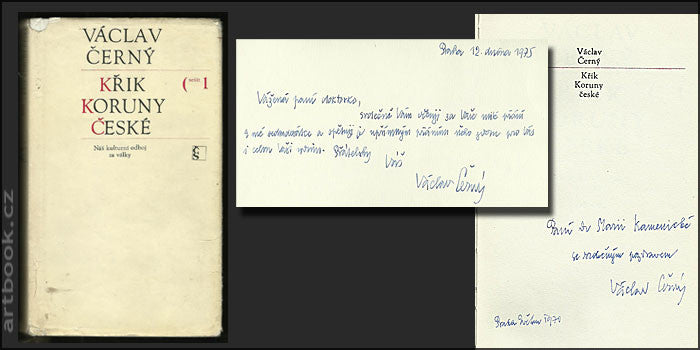 VÁCLAV
ČERNÝ
KŘIK
KORUNY
ČESKÉ
sešit 1
Náš kulturní odboj
za války
Praha 12. února 1975
Vážená paní doktorko,
srdečně Vám děkuji za Vaše milé přání
k mé sedmdesátce a opětuji je upřímným přáním všeho pro Vás
i celou Vaši rodinu. Přátelsky Váš
Václav Černý
Václav
Černý
Křik
Koruny
české
Paní Dr Marii Kamenické
se srdečným pozdravem
Václav Černý
Praha 1970
artbook.cz